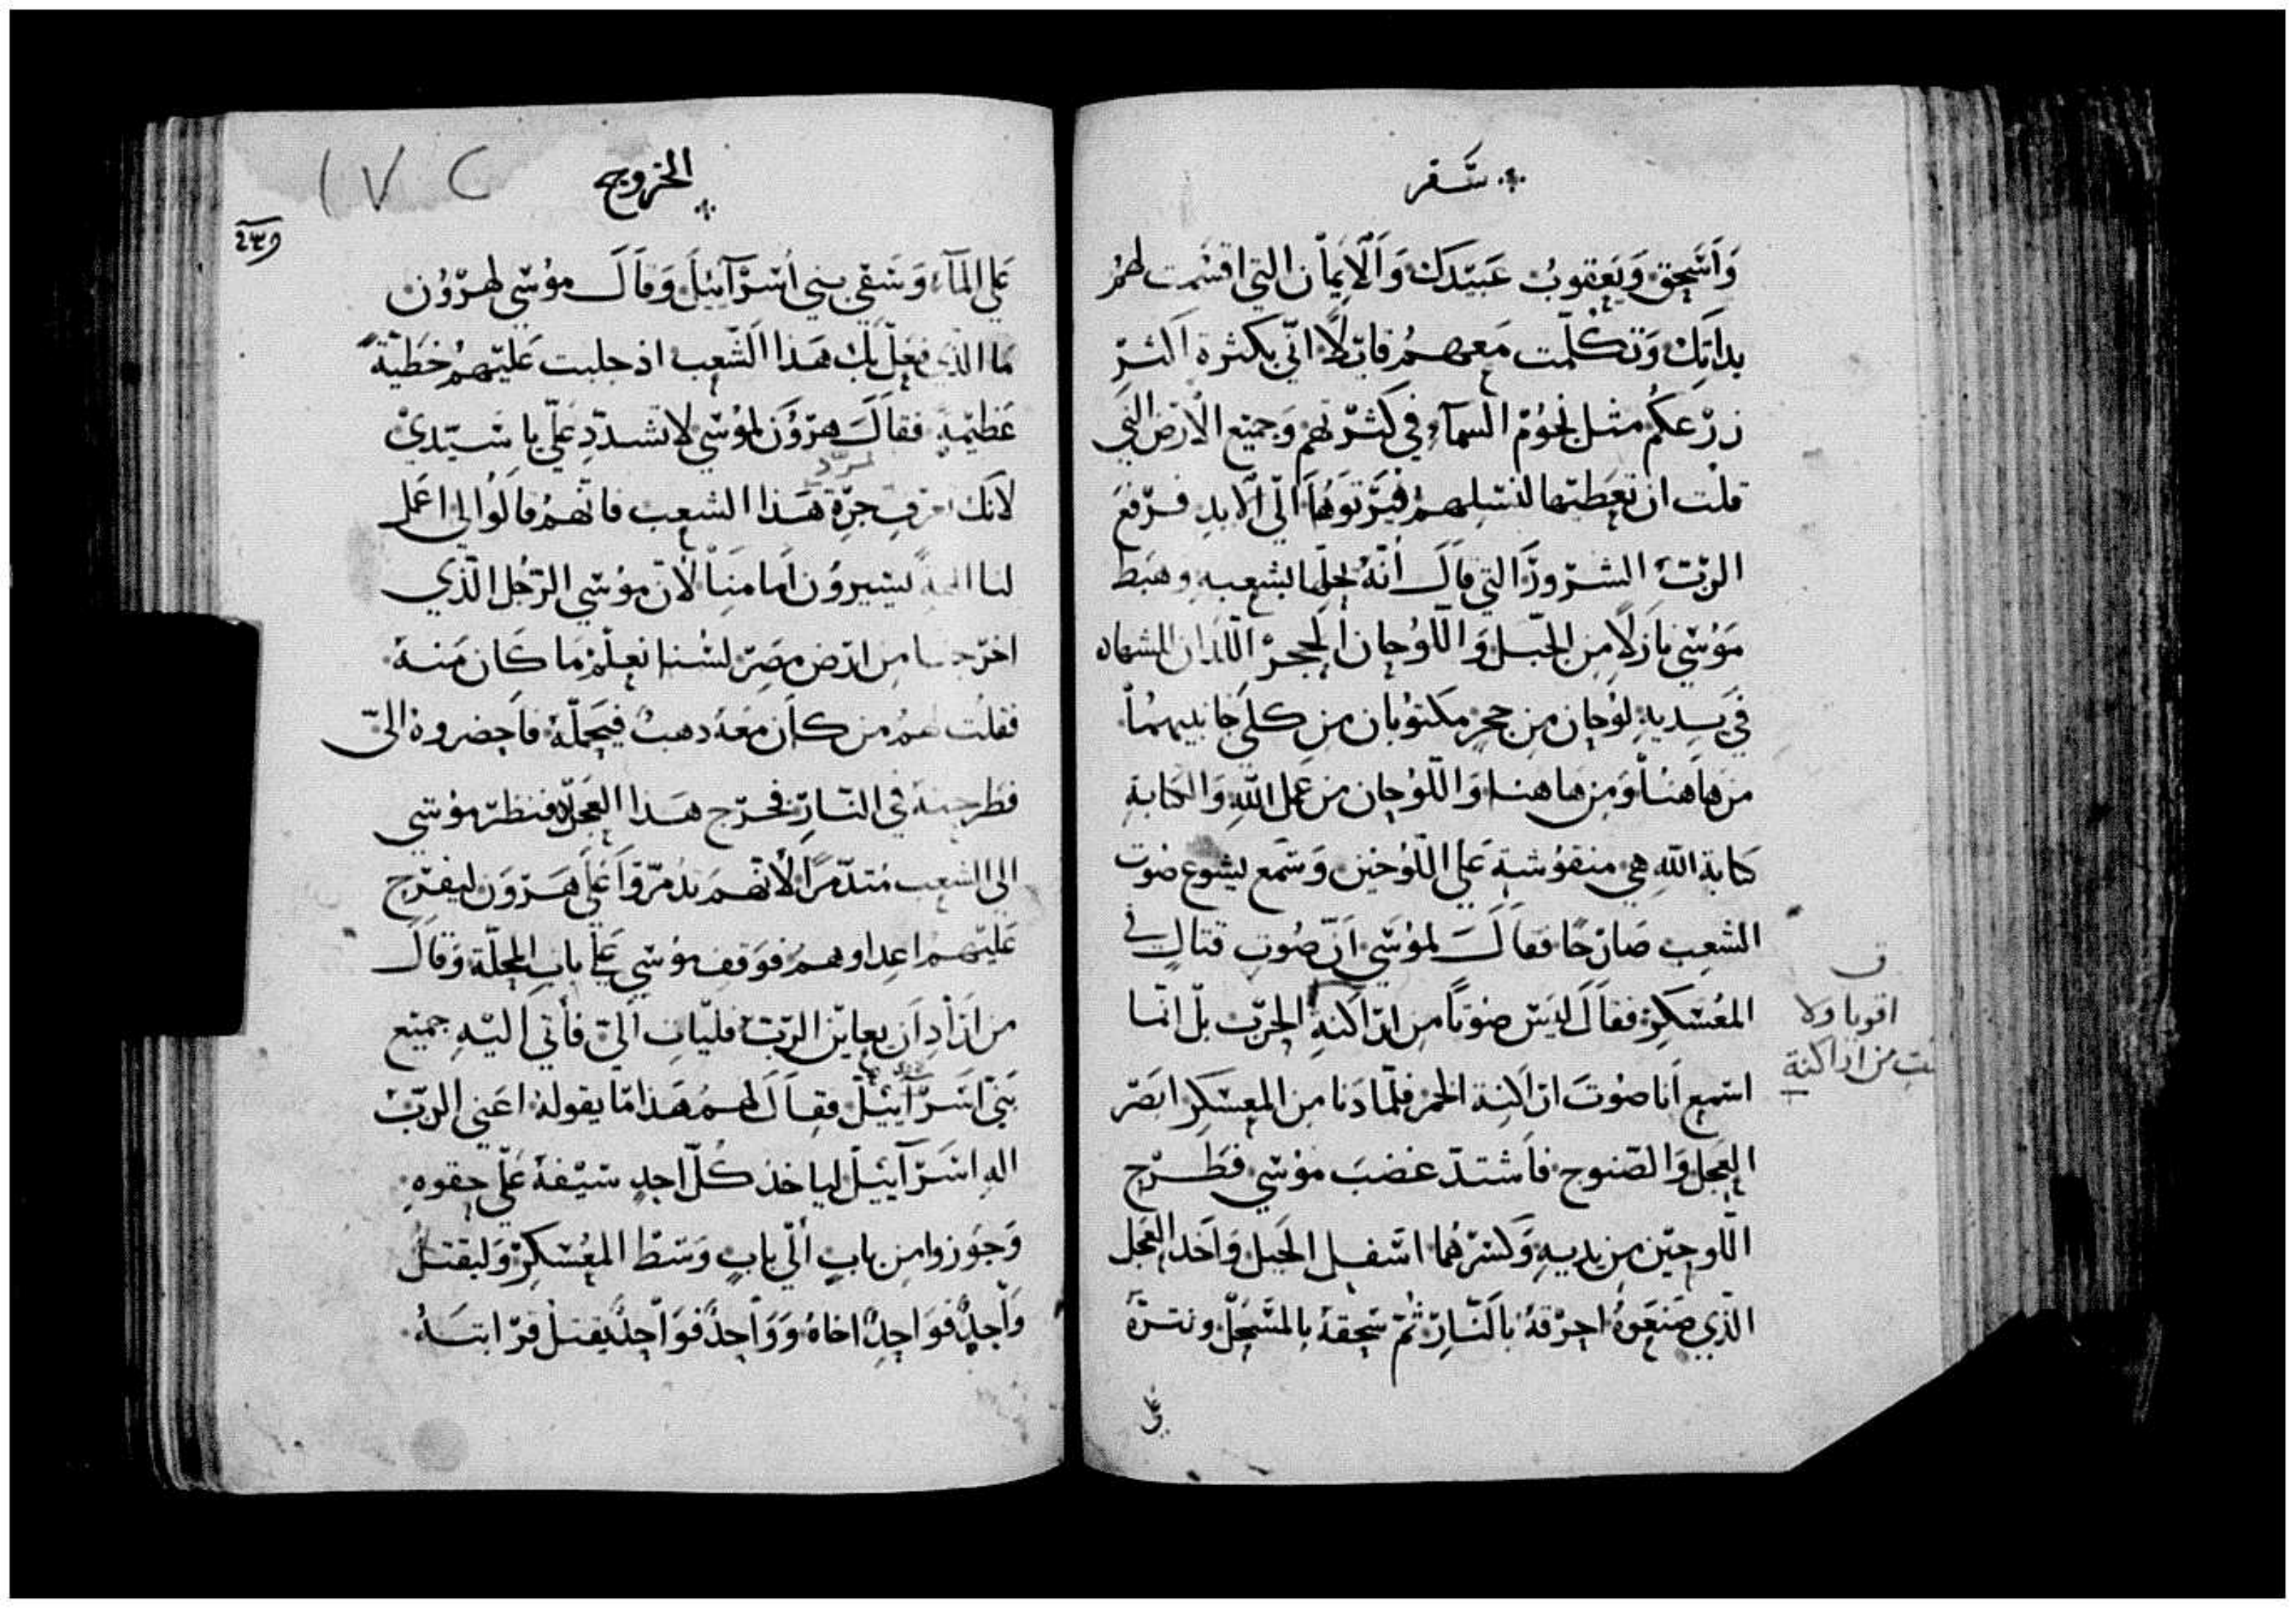 سفر
واسحق ويعقوب عبيدك والايمان التي اقسمت لهم
بذاتك وتكلمت معهم قايلا اني بكثرة اكثر
زرعكم مثل نجوم السماء في كثرتهم وجميع الارض التي
قلت ان تعطيها لنسلهم فيرثوها الى الابد فرفع
الرب الشرور التي قال انه يحلها بشعبه وهبط
موسى نازلا من الجبل واللوحان الحجر اللذان الشهاده
في يديه لوحان من حجر مكتوبان من كلى جانبيهما
من هاهنا ومن هاهنا واللوحان من عمل الله والكتابة
كتابة الله هي منقوشة على اللوحين وسمع يشوع صوت
الشعب صارخا فقال لموسى ان صوت قتال في
المعسكر فقال ليس صوتا من اراكنه الحرب بل انما
اسمع انا صوت اراكنة الخمر فلما دنا من المعسكر ابصر
العجل والصنوج فاشتد غضب موسى فطرح
اللوحين من يديه وكسرهما اسفل الجبل واخذ العجل
الذي صنعوه احرقه بالنار ثم سحقه بالمسحل ونثره
على
ق
اقويا ولا
من اراكنة
الخروج
١٧٢
على الماء وسقى بني اسرآئيل وقال موسى لهرون
ما الذي فعل بك هذا الشعب اذ جلبت عليهم خطية
عظيمة فقال هرون لموسى لا تشدد علي يا سيدي
لانك تعرف حرة هذا الشعب فانهم قالوا لي اعمل
لنا الهة يسيرون امامنا لان موسى الرجل الذي
اخرجنا من ارض مصر لسنا نعلم ما كان منه
فقلت لهم من كان معه دهب فيحمله فاحضروه الي
فطرحته في النار فخرج هذا العجل فنظر موسى
الى الشعب متدمرا لانهم تدمروا على هرون ليفرح
عليهم اعداوهم فوقف موسى على باب المحلة وقال
من اراد ان يعاين الرب فليات الي فأتى اليه جميع
بني اسرآئيل فقال لهم هذا ما يقوله اعني الرب
اله اسرآئيل لياخذ كل احد سيفه على حقوه
وجوزوا من باب الى باب وسط المعسكر وليقتل
واحد فواحد اخاه وواحد فواحد يقتل قرابته